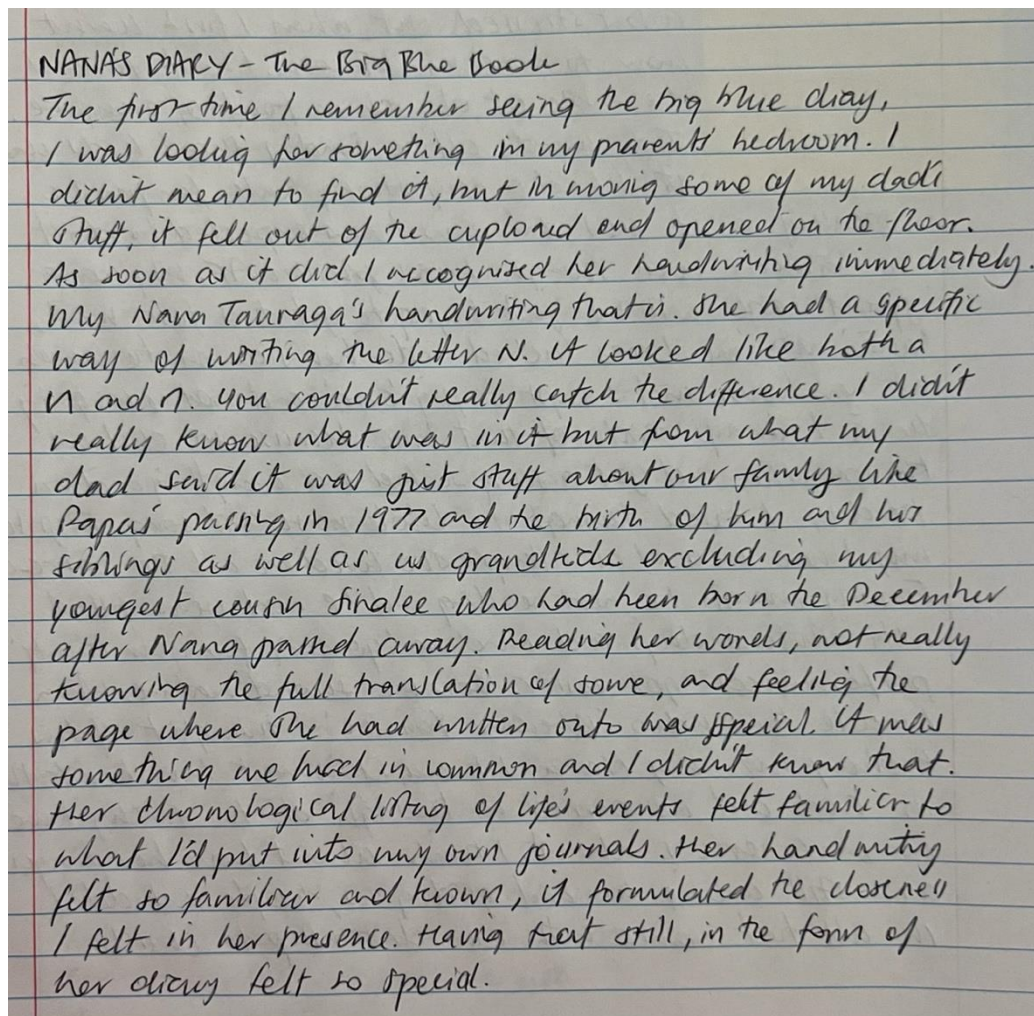 NANA'S DIARY - The Big Blue Book
The first time I remember seeing the big blue diary,
I was looking for something in my parents' bedroom. I
didn't mean to find it, but in moving some of my dad's
stuff, it fell out of the cupboard and opened on the floor.
As soon as it did I recognised her handwriting immediately.
My Nana Tauraga's handwriting that is. She had a specific
way of writing the letter N. It looked like both a
N and n. You couldn't really catch the difference. I didn't
really know what was in it but from what my
dad said it was just stuff about our family like
Papa's passing in 1977 and the birth of him and his
siblings as well as us grandkids excluding my
youngest cousin Sinalee who had been born the December
after Nana passed away. Reading her words, not really
knowing the full translation of some, and feeling the
page where she had written onto was special. It was
something we had in common and I didn't know that.
Her chronological listing of life's events felt familiar to
what I'd put into my own journals. Her handwriting
felt so familiar and known, it formulated the closeness
I felt in her presence. Having that still, in the form of
her diary felt so special.